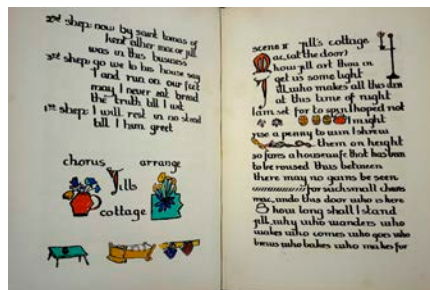 2nd shep: now by saint tomas of
kent other mac or jill
was in this business
3rd shep: go we to his house say
I and run on our feet
may I never eat bread
the truth till I wit
1st shep: I will rest in no stead
till I him greet
chorus arrange
jills
cottage
scene II jill's cottage
mac, (at the door)
how jill art thou in
get us some light
jill, who makes all this din
at this time of night
I am set for to spin I hoped not
I might
rise a penny to win I shrew
them on height
so fares a housewife that has been
to be roused thus between
there may no gains be seen
for such small chares
mac, undo this door who is here
how long shall I stand
jill, why who wanders who
wakes who comes who goes who
brews who bakes who makes for